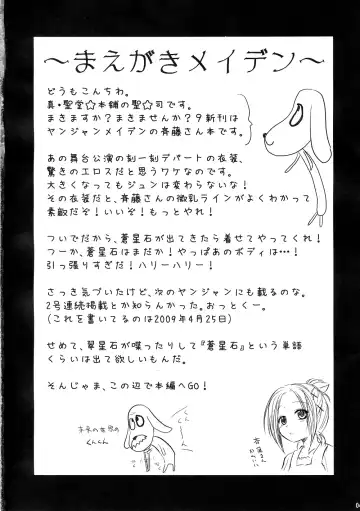 ～まえがきメイデン～
どうもこんちわ。
真・聖堂☆本舗の聖☆司です。
まきますか？まきませんか？９新刊は
ヤンジャンメイデンの斉藤さん本です。
あの舞台公演の刻一刻デパートの衣装、
驚きのエロスだと思うワケなのです。
大きくなってもジュンは変わらないな！
その衣装だと、斉藤さんの微乳ラインがよくわかって
素敵だぞ！いいぞ！もっとやれ！
ついでだから、蒼星石が出てきたら着せてやってくれ！
つーか、蒼星石はまだか！やっぱあのボディは…！
引っ張りすぎだ！ハリーハリー！
さっき気づいたけど、次のヤンジャンにも載るのな。
２号連続掲載とか知らんかった。おっとくー。
(これを書いてるのは2009年4月25日)
せめて、翠星石が喋ったりして『蒼星石』という単語
くらいは出て欲しいもんだ。
そんじゃま、この辺で本編へGO！
くんくん